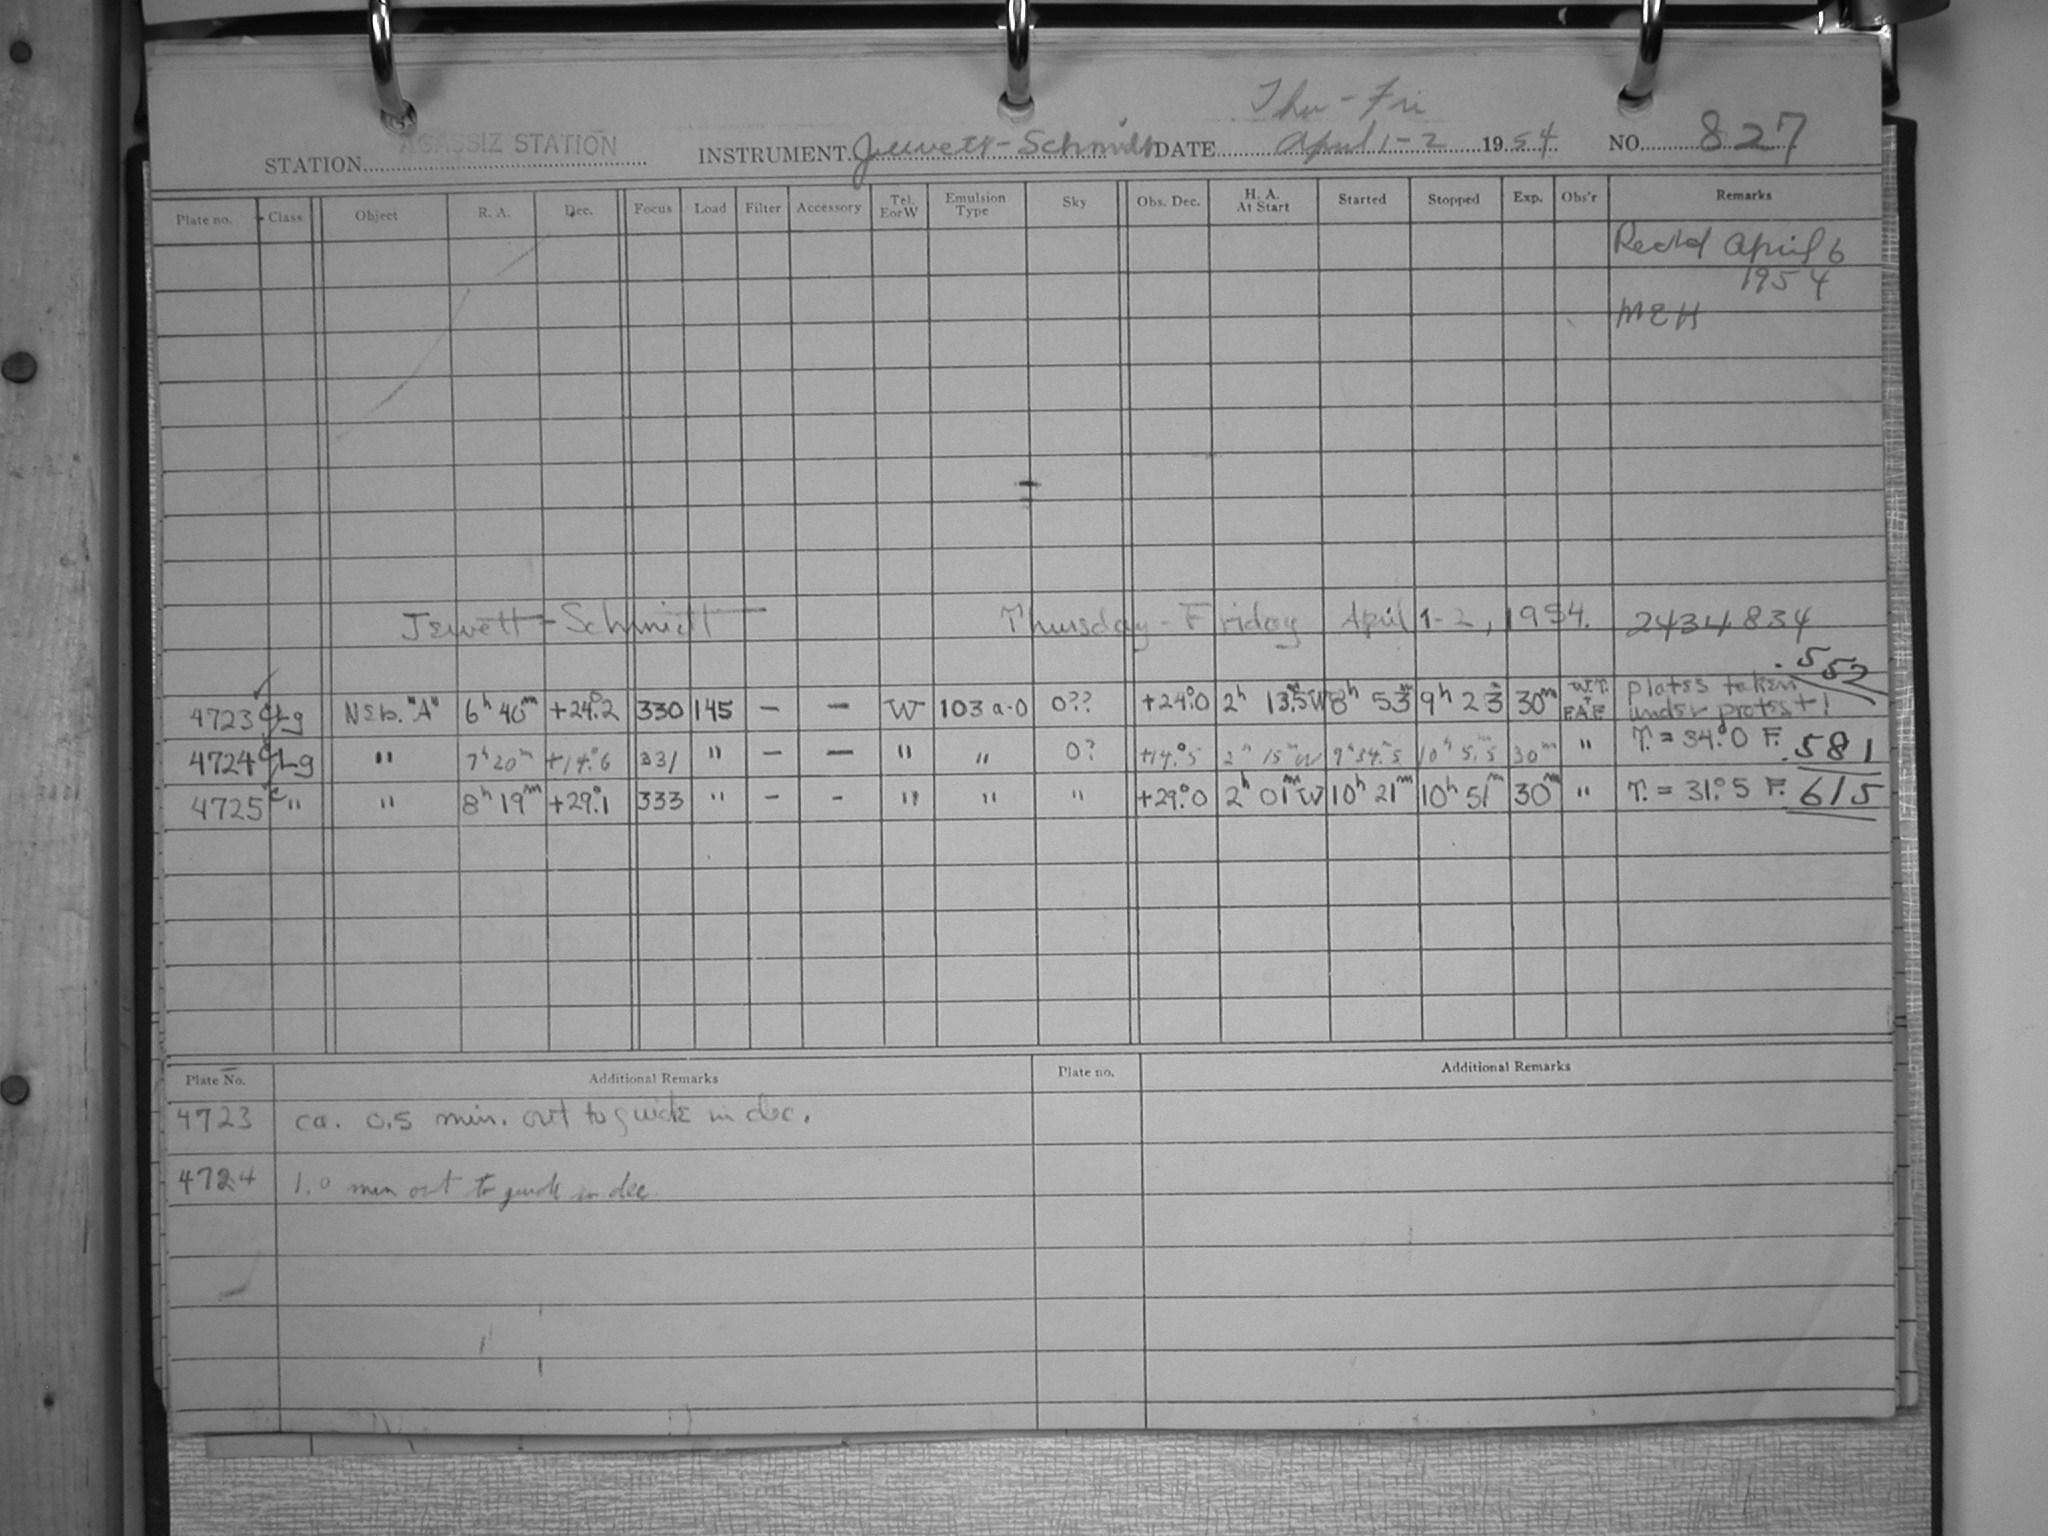 Thu - Fri
STATION AGASSIZ STATION INSTRUMENT Jewett-Schmidt DATE April 1-2 1954 NO. 827
Plate no. Class Object R. A. Dec. Focus Load Filter Accessory Tel. E or W Emulsion Type Sky Obs. Dec. H. A. At Start Started Stopped Exp. Obs'r Remarks
Rec'd April 6
1954
MEH
Jewett-Schmidt Thursday-Friday April 1-2, 1954. 2434834
4723 Lg Neb. "A" 6h 40m +24.°2 330 145 - - W 103a-O 0?? +24.°0 2h 13.5m W 8h 53m 9h 23m 30m W.T. + F.A.F. plates taken under protest! .552
4724 Lg " 7h 20m +14.°6 331 " - - " " 0? +14.°5 2h 15m W 9h 34m.5 10h 5m.5 30m " T. = 34.°0 F. .581
4725 " " 8h 19m +29.°1 333 " - - " " " +29.°0 2h 01m W 10h 21m 10h 51m 30m " T. = 31.°5 F. 615
Plate No. Additional Remarks Plate no. Additional Remarks
4723 ca. 0.5 min. out to guide in dec.
4724 1.0 min out to guide in dec.